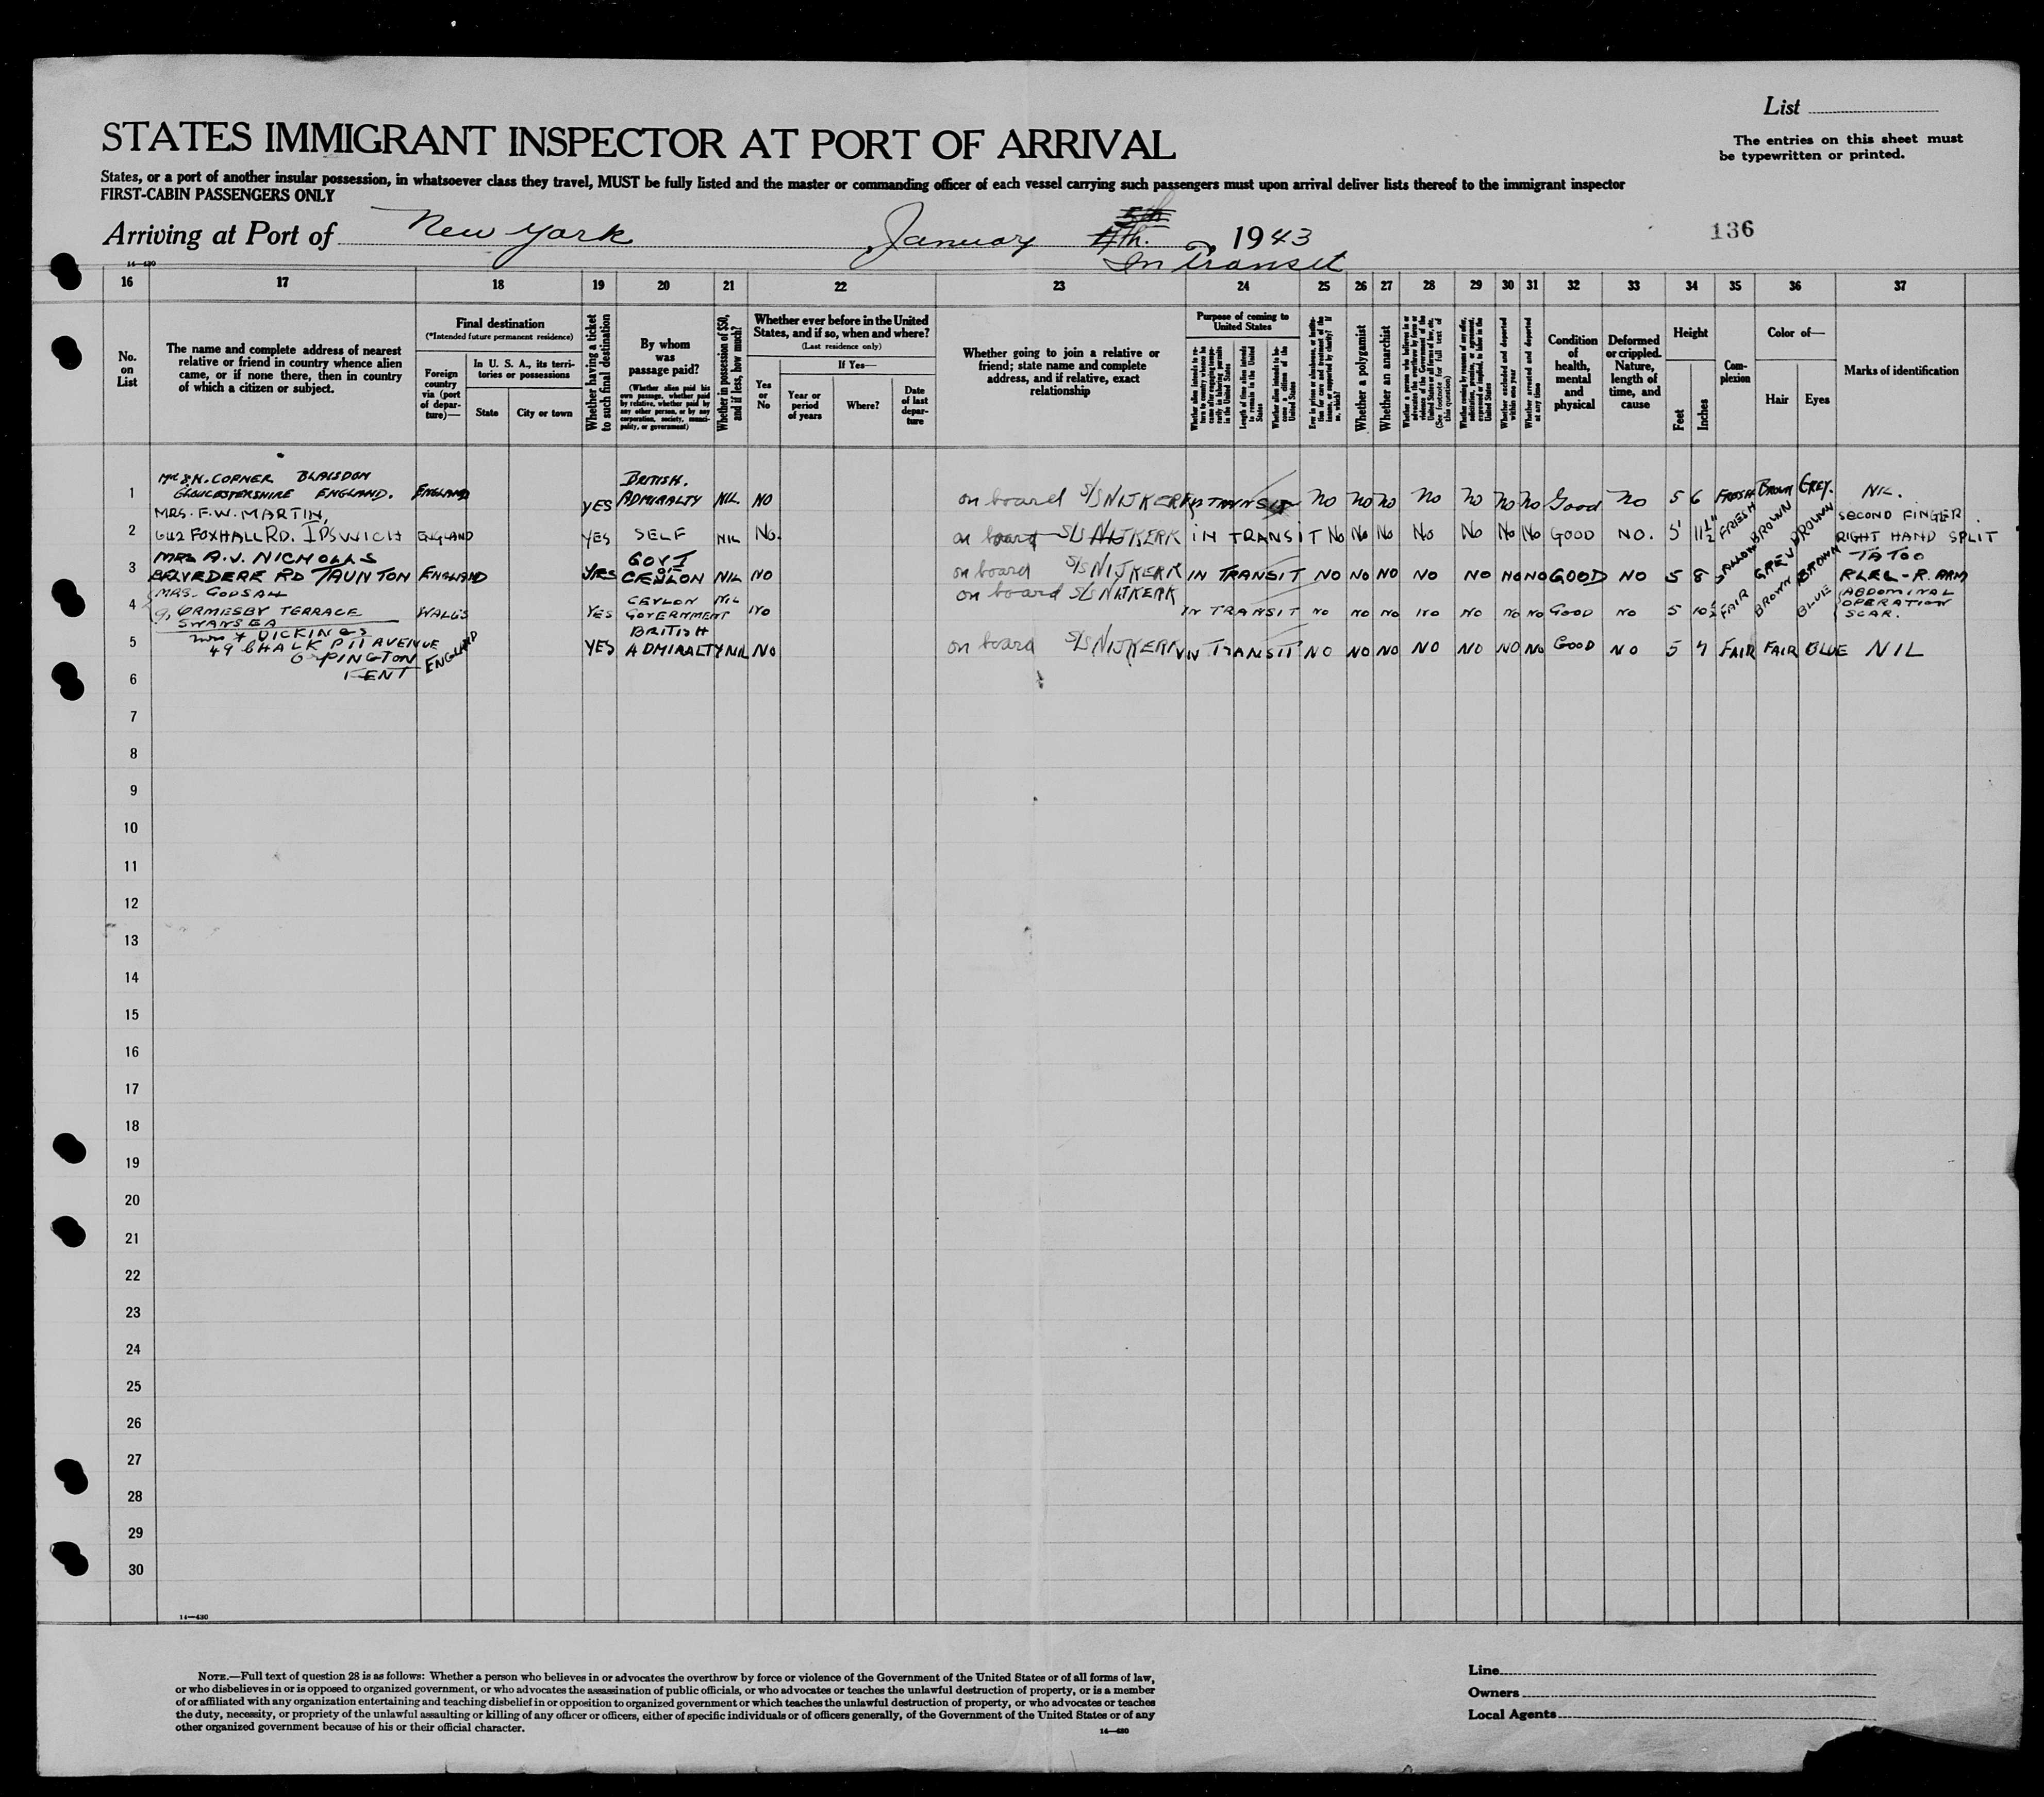 List
STATES IMMIGRANT INSPECTOR AT PORT OF ARRIVAL
The entries on this sheet must
be typewritten or printed.
States, or a port of another insular possession, in whatsoever class they travel, MUST be fully listed and the master or commanding officer of each vessel carrying such passengers must upon arrival deliver lists thereof to the immigrant inspector
FIRST-CABIN PASSENGERS ONLY
5th
Arriving at Port of New York January 4th. , 1943
136
In Transit
14—430
16 17 18 19 20 21 22 23 24 25 26 27 28 29 30 31 32 33 34 35 36 37
No.
on
List
The name and complete address of nearest
relative or friend in country whence alien
came, or if none there, then in country
of which a citizen or subject.
Final destination
(*Intended future permanent residence)
Foreign
country
via (port
of depar-
ture)—
In U. S. A., its terri-
tories or possessions
State
City or town
Whether having a ticket
to such final destination
By whom
was
passage paid?
(Whether alien paid his
own passage, whether paid
by relative, whether paid by
any other person, or by any
corporation, society, munici-
pality, or government)
Whether in possession of $50,
and if less, how much?
Whether ever before in the United
States, and if so, when and where?
(Last residence only)
Yes
or
No
If Yes—
Year or
period
of years
Where?
Date
of last
depar-
ture
Whether going to join a relative or
friend; state name and complete
address, and if relative, exact
relationship
Purpose of coming to
United States
Whether alien intends to re-
turn to country whence he
came after engaging tempo-
rarily in laboring pursuits
in the United States
Length of time alien intends
to remain in the United
States
Whether alien intends to be-
come a citizen of the
United States
Ever in prison or almshouse, or institu-
tion for care and treatment of the
insane, or supported by charity? If
so, which?
Whether a polygamist
Whether an anarchist
Whether a person who believes in or
advocates the overthrow by force or
violence of the Government of the
United States or all forms of law, etc.
(See footnote for full text of
this question)
Whether coming by reason of any offer,
solicitation, promise, or agreement,
expressed or implied, to labor in the
United States
Whether excluded and deported
within one year
Whether arrested and deported
at any time
Condition
of
health,
mental
and
physical
Deformed
or crippled.
Nature,
length of
time, and
cause
Height
Feet
Inches
Com-
plexion
Color of—
Hair
Eyes
Marks of identification
1 COPNER BLAISDON
GLOUCESTERSHIRE ENGLAND. ENGLAND YES BRITISH.
ADMIRALTY NIL NO on board S/S NIJKERK IN TRANSIT No No No No No No No Good No 5 6 FRESH BROWN GREY. NIL.
2 MRS. F.W. MARTIN,
642 FOXHALL RD. IPSWICH ENGLAND YES SELF NIL No. on board S/S NIJKERK IN TRANSIT No No No No No No No GOOD NO. 5' 11½" FRESH BROWN BROWN SECOND FINGER
RIGHT HAND SPLIT
3 MRS A.J. NICHOLLS
BELVEDERE RD TAUNTON ENGLAND YES GOVT
OF
CEYLON NIL NO on board S/S NIJKERK IN TRANSIT NO NO NO NO NO NO NO GOOD NO 5 8 SALLOW GREY BROWN TATOO
R. ARM
4 MRS. GODSALL
9, ORMESBY TERRACE
SWANSEA WALES YES CEYLON
GOVERNMENT NIL NO on board S/S NIJKERK
IN TRANSIT NO NO NO NO NO NO NO GOOD NO 5 10½ FAIR BROWN BLUE ABDOMINAL
OPERATION
SCAR.
5 DICKINGS
49 CHALK PIT AVENUE
ORPINGTON
KENT ENGLAND YES BRITISH
ADMIRALTY NIL NO on board S/S NIJKERK IN TRANSIT NO NO NO NO NO NO NO GOOD NO 5 7 FAIR FAIR BLUE NIL
6
7
8
9
10
11
12
13
14
15
16
17
18
19
20
21
22
23
24
25
26
27
28
29
30
14—430
NOTE.—Full text of question 28 is as follows: Whether a person who believes in or advocates the overthrow by force or violence of the Government of the United States or of all forms of law,
or who disbelieves in or is opposed to organized government, or who advocates the assassination of public officials, or who advocates or teaches the unlawful destruction of property, or is a member
of or affiliated with any organization entertaining and teaching disbelief in or opposition to organized government or which teaches the unlawful destruction of property, or who advocates or teaches
the duty, necessity, or propriety of the unlawful assaulting or killing of any officer or officers, either of specific individuals or of officers generally, of the Government of the United States or of any
other organized government because of his or their official character.
14—430
Line
Owners
Local Agents